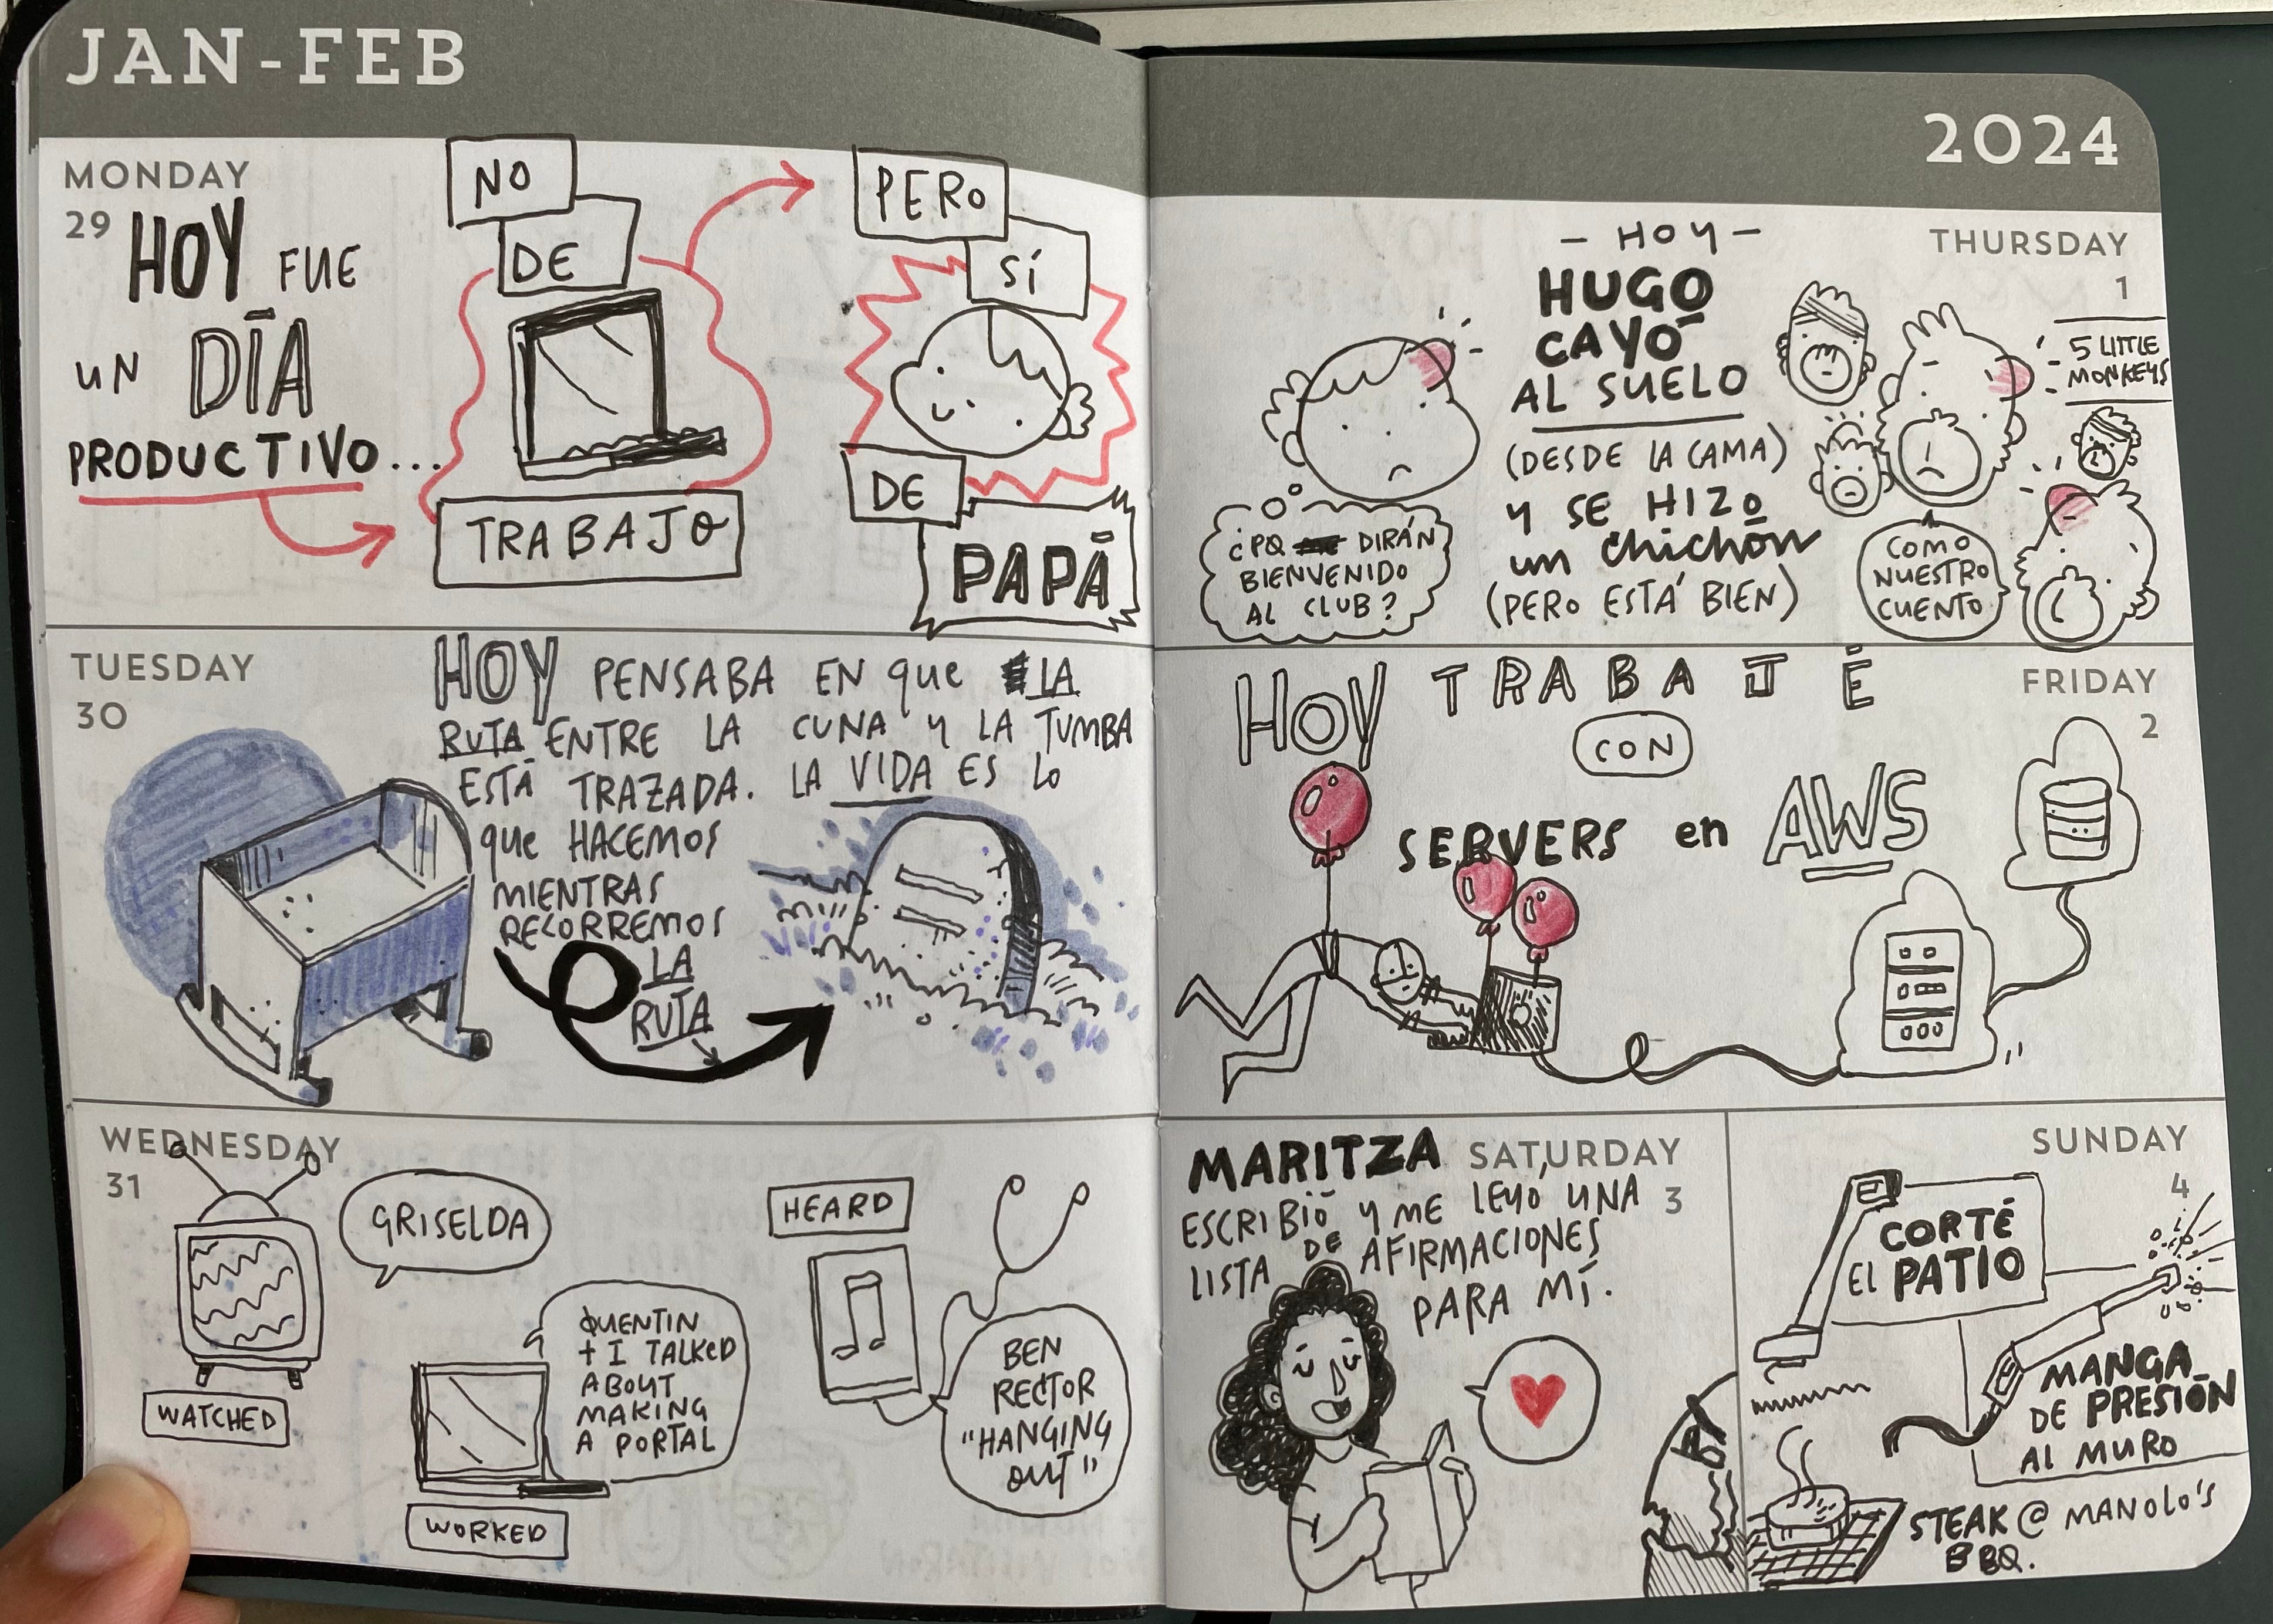 JAN-FEB
2024
MONDAY
29
HOY FUE
UN DÍA
PRODUCTIVO...
NO
DE
TRABAJO
PERO
SÍ
DE
PAPÁ
TUESDAY
30
HOY PENSABA EN que LA
RUTA ENTRE LA CUNA Y LA TUMBA
ESTÁ TRAZADA. LA VIDA ES LO
que HACEMOS
MIENTRAS
RECORREMOS
LA
RUTA
WEDNESDAY
31
GRISELDA
WATCHED
QUENTIN
+ I TALKED
ABOUT
MAKING
A PORTAL
WORKED
HEARD
BEN
RECTOR
"HANGING
OUT"
THURSDAY
1
- HOY -
HUGO
CAYÓ
AL SUELO
(DESDE LA CAMA)
Y SE HIZO
un chichón
(PERO ESTÁ BIEN)
¿PQ DIRÁN
BIENVENIDO
AL CLUB?
5 LITTLE
MONKEYS
COMO
NUESTRO
CUENTO
FRIDAY
2
HOY TRABAJÉ
CON
SERVERS en AWS
SATURDAY
3
MARITZA
ESCRIBIÓ Y ME LEYÓ UNA
LISTA DE AFIRMACIONES
PARA MÍ.
SUNDAY
4
CORTÉ
EL PATIO
MANGA
DE PRESIÓN
AL MURO
STEAK @ MANOLO'S
BBQ.